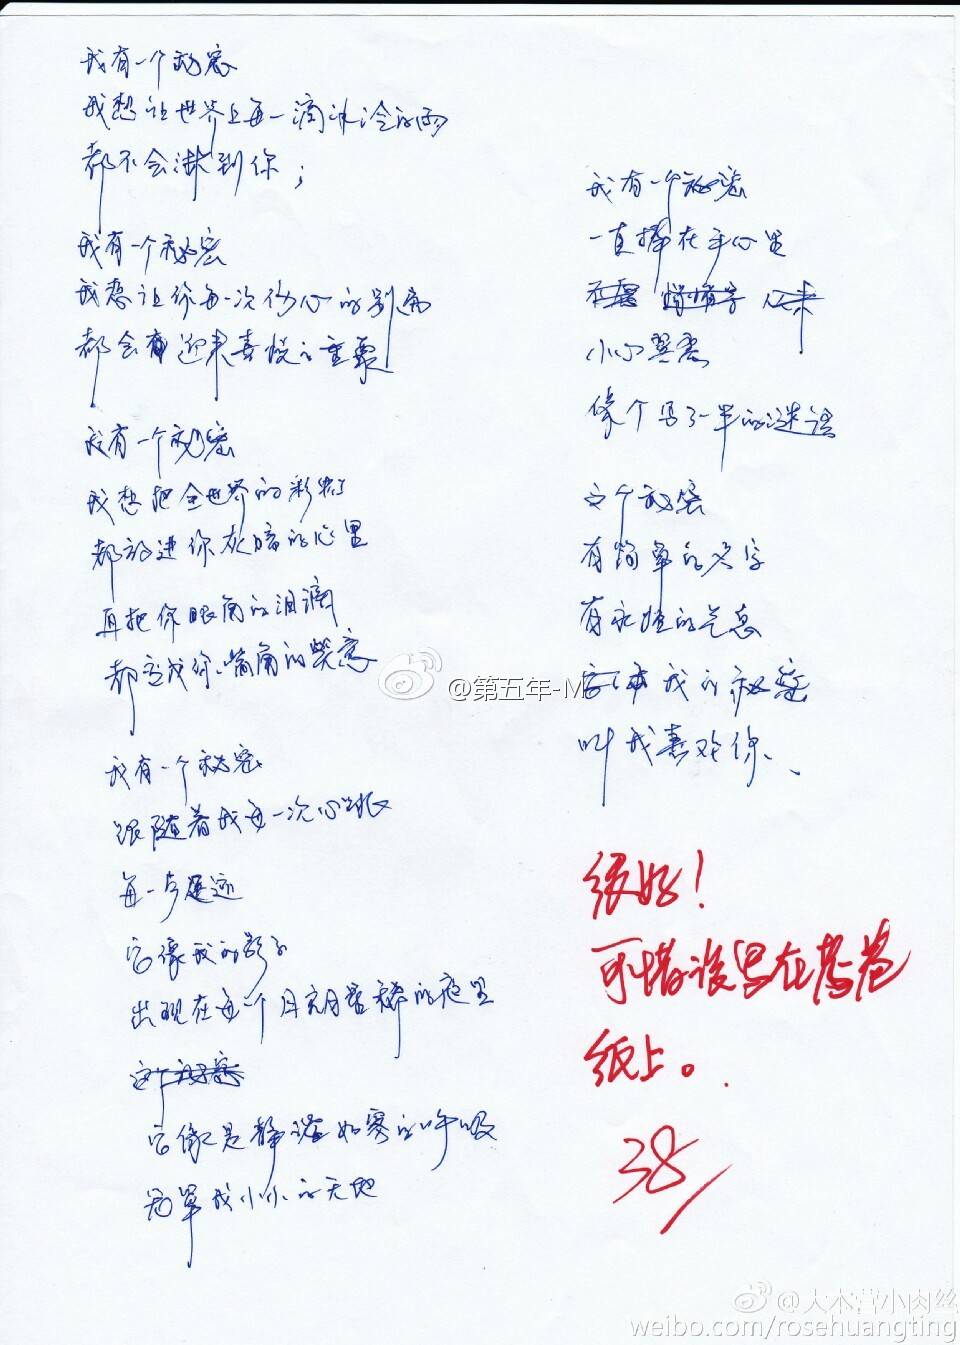 我有一个秘密
我想让世界上每一滴冰冷的雨
都不会淋到你；
我有一个秘密
我想让你每一次伤心的别离
都会迎来喜悦的重聚
我有一个秘密
我想把全世界的彩虹
都放进你灰暗的心里
再把你眼角的泪滴
都变成你嘴角的笑意
我有一个秘密
跟随着我每一次心跳
每一步足迹
它像我的影子
出现在每个月朗星稀的夜里
这个秘密
它像是静谧如雾的呼吸
笼罩我小小的天地
我有一个秘密
一直捧在手心里
小心翼翼
像个写了一半的谜语
这个秘密
有简单的名字
有永恒的气息
我的秘密
叫我喜欢你、
很好！
可惜误写在考卷
纸上。
38
@第五年-M
@大本营小肉丝
weibo.com/rosehuangting